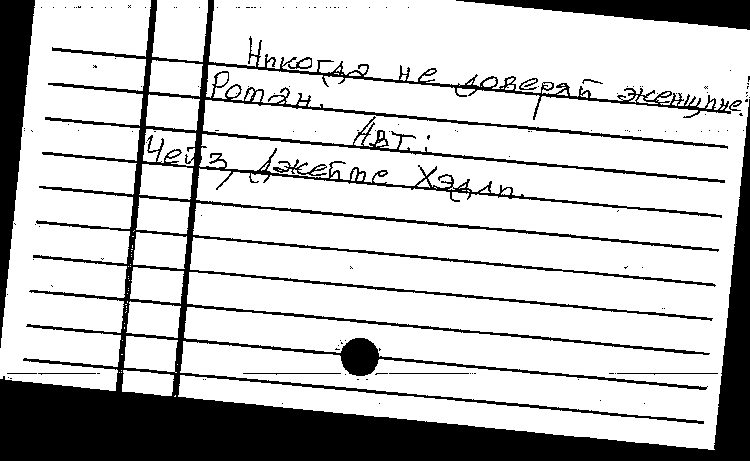 Никогда не доверяй женщине.
Роман.
Авт.:
Чейз, Джеймс Хэдли.